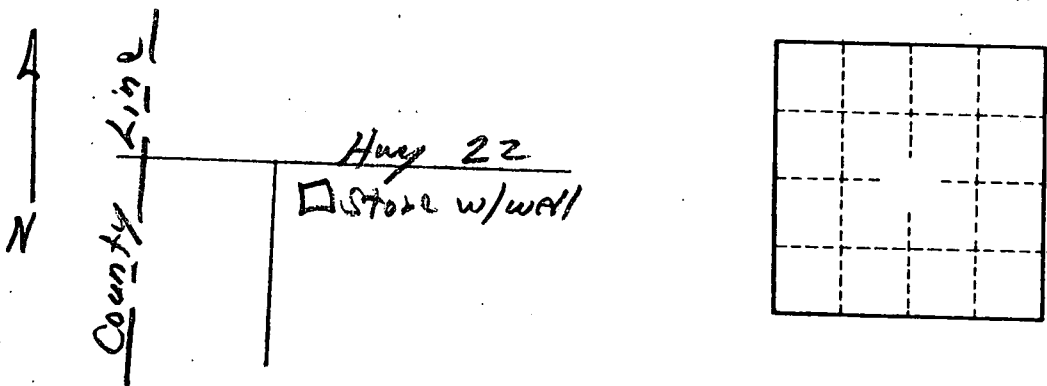 County Line
Hwy 22
Store w/well
N